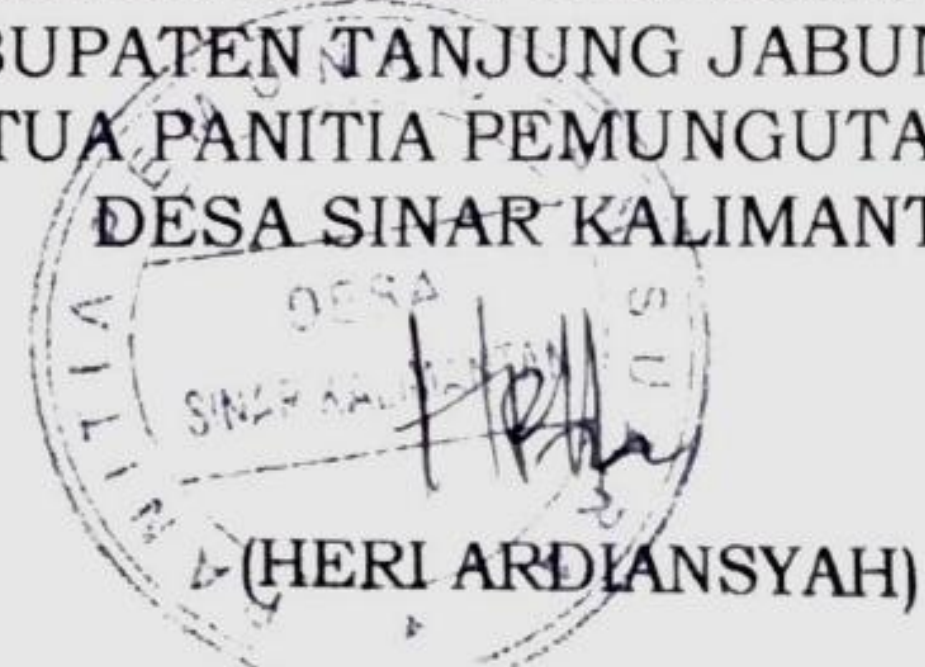 BUPATEN TANJUNG JABUN
TUA PANITIA PEMUNGUTA
DESA SINAR KALIMANT
DESA
SINAR KALIMANTAN
PANITIA PEMUNGUTAN SU
(HERI ARDIANSYAH)